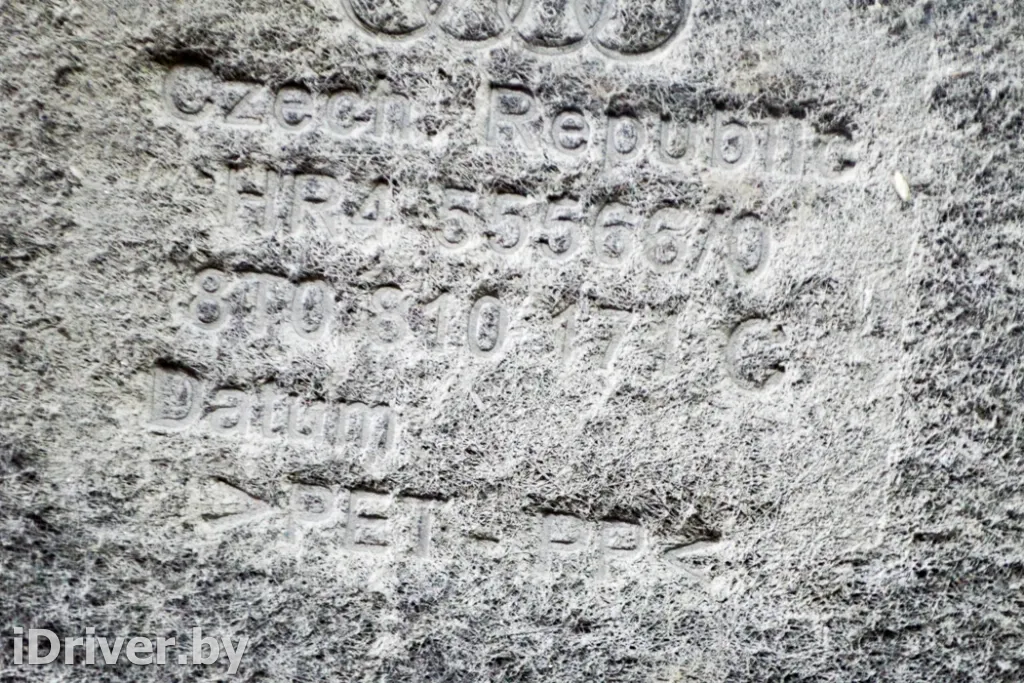 Czech Republic
HR4 55566/0
8T0 810 171 C
Datum
>PET - PP<
iDriver.by